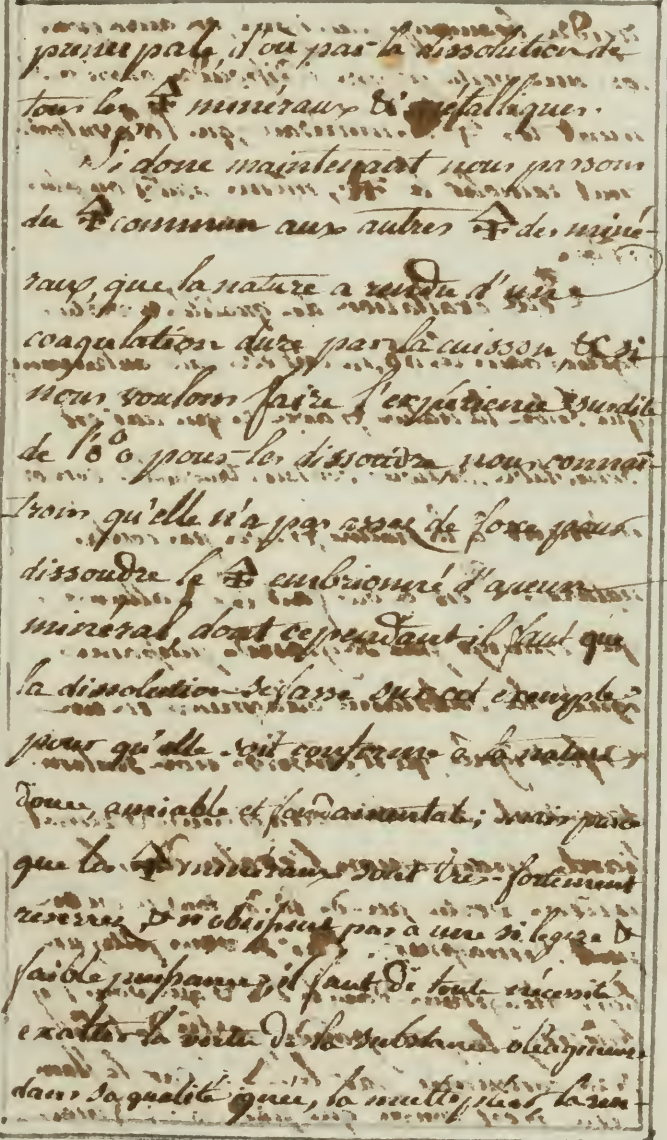 principale, d'ou par la dissolution de
tous les 🜍 minéraux & métalliques.
Si donc maintenant nous passons
du 🜍 commun aux autres 🜍 des miné-
raux, que la nature a rendu d'une
coagulation dure par la cuisson & si
nous voulons faire l'expérience susdite
de l' pour les dissoudre nous connaî-
trons qu'elle n'a pas assez de force pour
dissoudre le 🜍 embrionné d'aucun
minéral, dont cependant il faut que
la dissolution se fasse sur cet exemple
pour qu'elle soit conforme à la nature
douce, amiable et fondamentale; mais parce
que les 🜍 minéraux sont très-fortement
resserrés, & n'obeissent pas a une si legere &
faible puissance, il faut de toute nécessité
exalter la vertu de la substance oléagineuse
dans sa qualité ignée, la multiplier la ren-